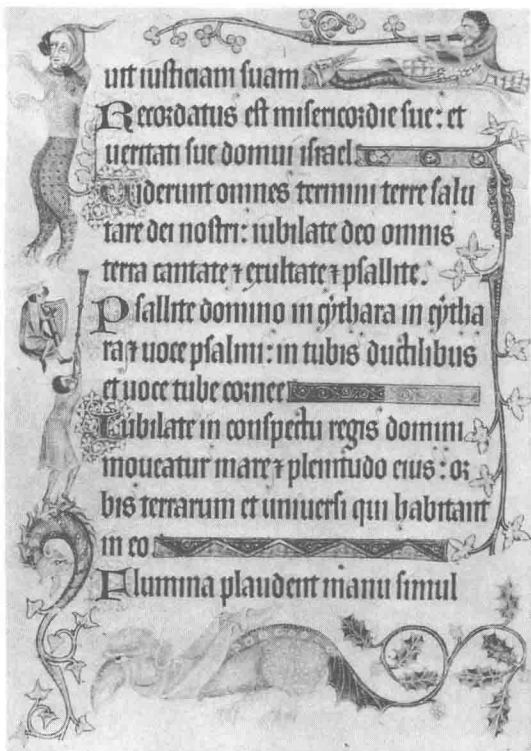 uit iusticiam suam
Recordatus est misericordie sue: et
ueritati sue domui israel
Uiderunt omnes termini terre salu
tare dei nostri: iubilate deo omnis
terra cantate ⁊ exultate ⁊ psallite.
Psallite domino in cythara in cytha
ra ⁊ uoce psalmi: in tubis ductilibus
et uoce tube cornee
Iubilate in conspectu regis domini
moueatur mare ⁊ plenitudo eius: or
bis terrarum et uniuersi qui habitant
in eo
Flumina plaudent manu simul